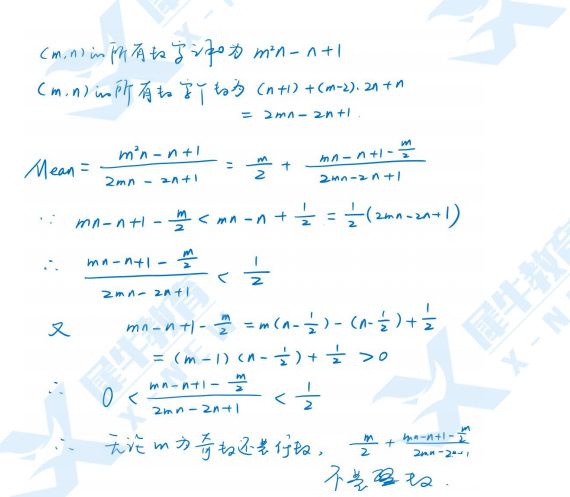 (m,n)的所有数字之和为 m²n - n + 1
(m,n)的所有数字个数为 (n+1) + (m-2)·2n + n
= 2mn - 2n + 1.
Mean = \frac{m²n - n + 1}{2mn - 2n + 1} = \frac{m}{2} + \frac{mn - n + 1 - \frac{m}{2}}{2mn - 2n + 1}
∵ mn - n + 1 - \frac{m}{2} < mn - n + \frac{1}{2} = \frac{1}{2}(2mn - 2n + 1)
∴ \frac{mn - n + 1 - \frac{m}{2}}{2mn - 2n + 1} < \frac{1}{2}
又 mn - n + 1 - \frac{m}{2} = m(n - \frac{1}{2}) - (n - \frac{1}{2}) + \frac{1}{2}
= (m-1)(n - \frac{1}{2}) + \frac{1}{2} > 0
∴ 0 < \frac{mn - n + 1 - \frac{m}{2}}{2mn - 2n + 1} < \frac{1}{2}
∴ 无论 m 为奇数还是偶数, \frac{m}{2} + \frac{mn - n + 1 - \frac{m}{2}}{2mn - 2n + 1}
不是整数.
犀牛教育
X-N